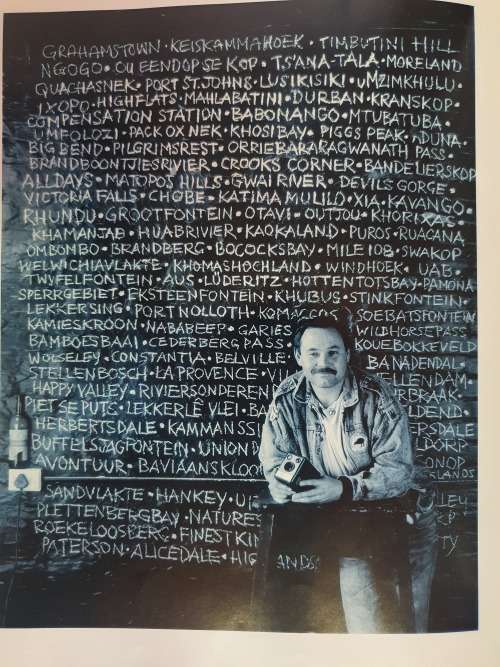 GRAHAMSTOWN · KEISKAMMAHOEK · TIMBUTINI HILL
NGOGO · OU EENDOP SE KOP · T,S'ANA-TALA · MORELAND
QUACHASNEK · PORT ST. JOHNS · LUSIKISIKI · UMZIMKHULU ·
IXOPO · HIGHFLATS · MAHLABATINI · DURBAN · KRANSKOP ·
COMPENSATION STATION · BABONANGO · MTUBATUBA ·
UMFOLOZI · PACK OX NEK · KHOSIBAY · PIGGS PEAK · DUNA ·
BIG BEND · PILGRIMSREST · ORRIE BARAGWANATH PASS ·
BRANDBOONTJIESRIVIER · CROOKS CORNER · BANDELIERSKOP
ALLDAYS · MATOPOS HILLS · GWAI RIVER · DEVILS GORGE ·
VICTORIA FALLS · CHOBE · KATIMA MULILO · XIA · KAVANGO ·
RHUNDU · GROOTFONTEIN · OTAVI · OUTJOU · KHORIXAS ·
KHAMANJAB · HUABRIVIER · KAOKALAND · PUROS · RUACANA
OMBOMBO · BRANDBERG · BOCOCKSBAY · MILE 108 · SWAKOP
WELWICHIAVLAKTE · KHOMASHOCHLAND · WINDHOEK · UAB ·
TWYFELFONTEIN · AUS · LÜDERITZ · HOTTENTOTSBAY · PAMONA
SPERRGEBIET · EKSTEENFONTEIN · KHUBUS · STINKFONTEIN ·
LEKKERSING · PORT NOLLOTH · KOMAGGAS · SOEBATSFONTEIN
KAMIESKROON · NABABEEP · GARIES WILDHORSEPASS
BAMBOESBAAI · CEDERBERG PASS · KOUE BOKKEVELD
WOLSELEY · CONSTANTIA · BELVILLE · BANADENDAL ·
STELLENBOSCH · LA PROVENCE · VI TELLENDAM
HAPPY VALLEY · RIVIERSONDEREN URBRAAK ·
PIET SE PUTS · LEKKERLÊ VLEI · BA LDEND ·
HERBERTSDALE · KAMMANSSI ERSDALE
BUFFELSJAGFONTEIN · UNION D LDORP
AVONTUUR · BAVIAANSKLOO ONOP
KLANDS
SANDVLAKTE · HANKEY · UI LLEU
PLETTENBERGBAY · NATURES KP
ROEKELOOSBERG · FINEST KIN TY
PATERSON · ALICEDALE · HIG
ANDS